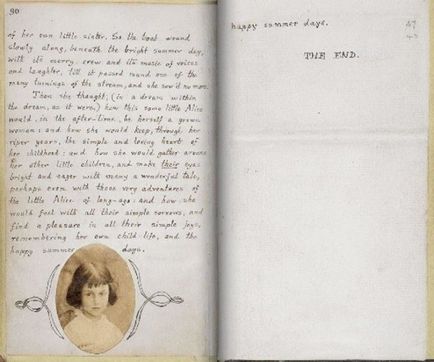 90
of her own little sister. So the boat wound
slowly along, beneath the bright summer-day,
with its merry crew and its music of voices
and laughter, till it passed round one of the
many turnings of the stream, and she saw it no more.
Then she thought, (in a dream within
the dream, as it were,) how this same little Alice
would, in the after-time, be herself a grown
woman: and how she would keep, through her
riper years, the simple and loving heart of
her childhood: and how she would gather around
her other little children, and make their eyes
bright and eager with many a wonderful tale,
perhaps even with these very adventures of
the little Alice of long-ago: and how she
would feel with all their simple sorrows, and
find a pleasure in all their simple joys,
remembering her own child-life, and the
happy summer days.
happy summer days.
THE END.